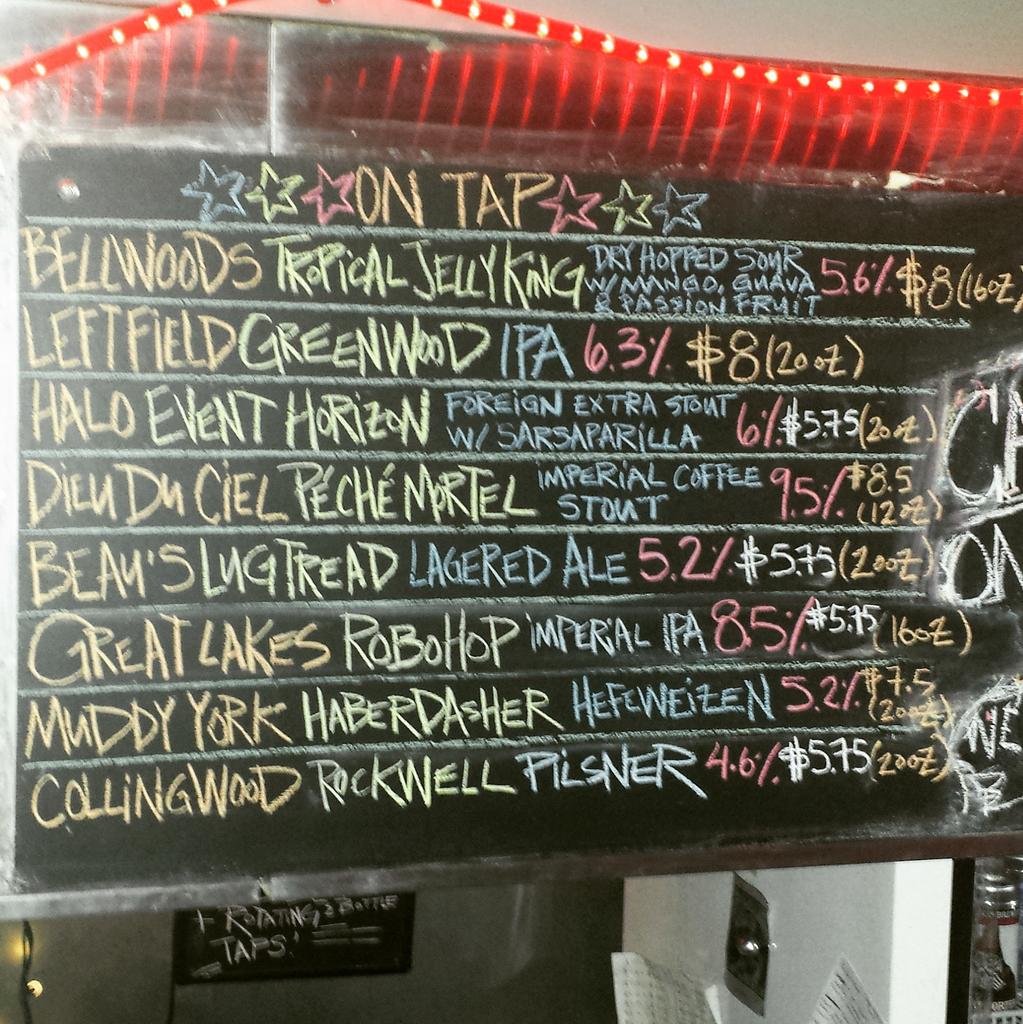 ON TAP
BELLWOODS TROPICAL JELLY KING DRY HOPPED SOUR W/ MANGO, GUAVA & PASSION FRUIT 5.6% $8 (16oz)
LEFT FIELD GREENWOOD IPA 6.3% $8 (20oz)
HALO EVENT HORIZON FOREIGN EXTRA STOUT W/ SARSAPARILLA 6% $5.75 (20oz)
DIEU DU CIEL PÉCHÉ MORTEL IMPERIAL COFFEE STOUT 9.5% $8.5 (12oz)
BEAU'S LUGTREAD LAGERED ALE 5.2% $5.75 (20oz)
GREAT LAKES ROBOHOP IMPERIAL IPA 8.5% $5.75 (16oz)
MUDDY YORK HABERDASHER HEFEWEIZEN 5.2% $7.5 (20oz)
COLLINGWOOD ROCKWELL PILSNER 4.6% $5.75 (20oz)
CA
ON
+ ROTATING BOTTLE
TAPS!